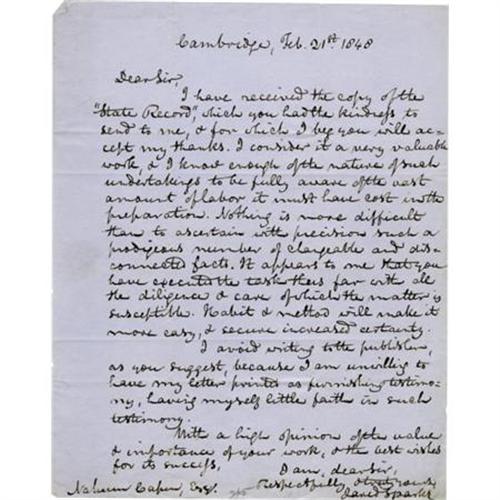 Cambridge, Feb. 21st. 1848
Dear Sir,
I have received the copy of the
"State Record," which you had the kindness to
send to me, & for which I beg you will ac-
cept my thanks. I consider it a very valuable
work, & I know enough of the nature of such
undertakings to be fully aware of the vast
amount of labor it must have cost in the
preparation. Nothing is more difficult
than to ascertain with precision such a
prodigeous number of changeable and dis-
connected facts. It appears to me that you
have executed the task thus far with all
the diligence & care of which the matter is
susceptible. Habit & method will make it
more easy, & secure increased certainty.
I avoid writing to the publisher,
as you suggest, because I am unwilling to
have my letter printed as furnishing testimo-
ny, having myself little faith in such
testimony.
With a high opinion of the value
& importance of your work, & the best wishes
for its success,
I am, dear Sir,
respectfully & truly yours,
Jared Sparks
Nahum Capen, Esq.